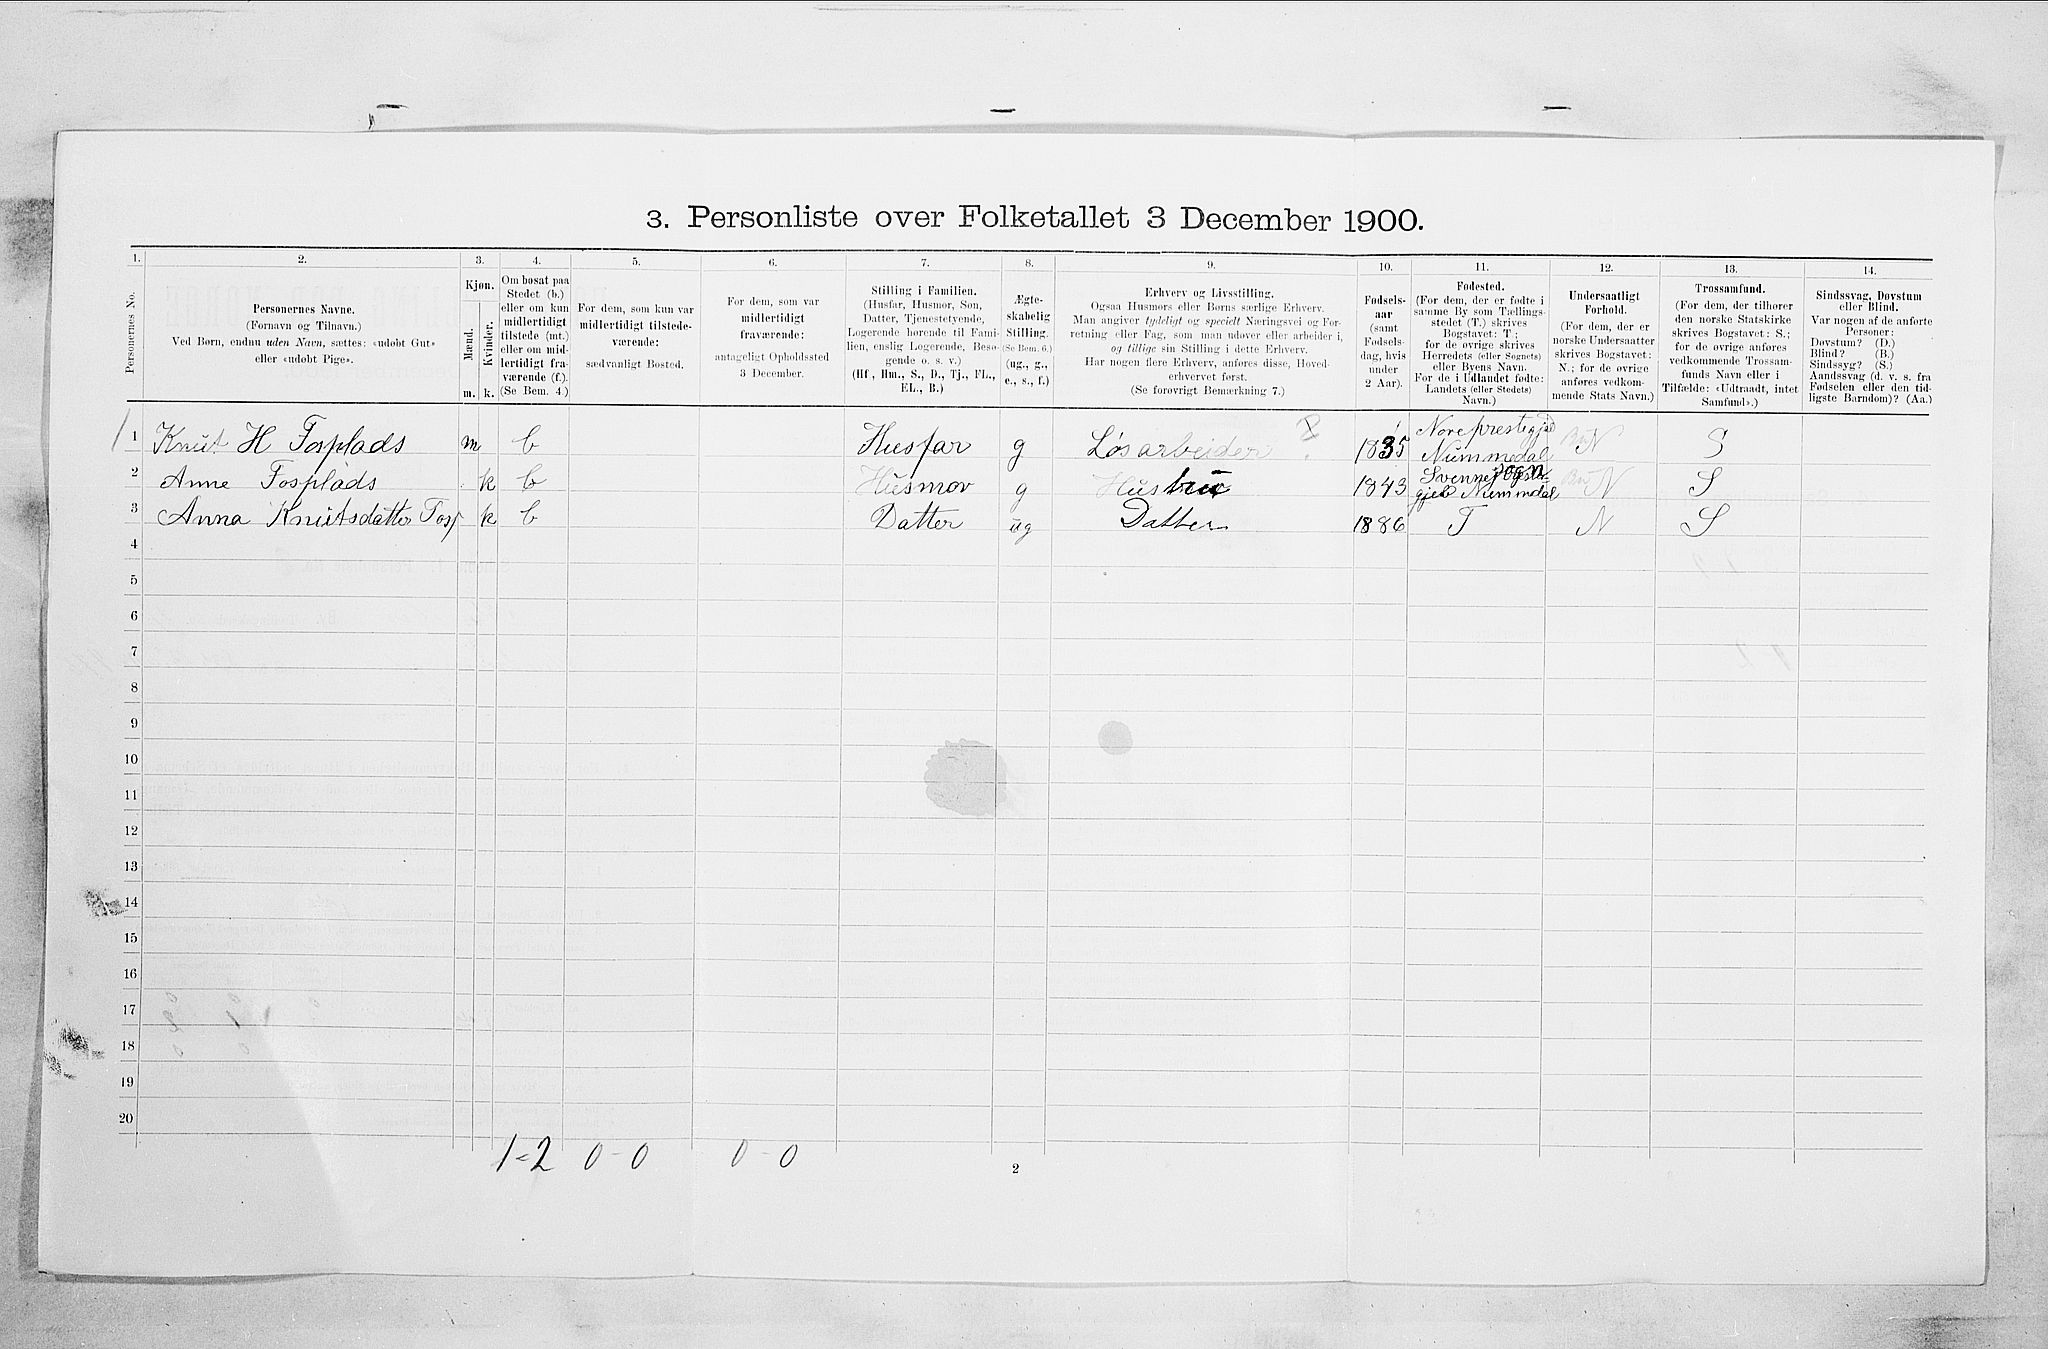 3. Personliste over Folketallet 3 December 1900.
1. 2. 3. 4. 5. 6. 7. 8. 9. 10. 11. 12. 13. 14.
Personernes No.
Personernes Navne.
(Fornavn og Tilnavn.)
Ved Børn, endnu uden Navn, sættes: «udøbt Gut»
eller «udøbt Pige».
Kjøn.
Mænd.
Kvinder.
m. k.
Om bosat paa
Stedet (b.)
eller om kun
midlertidigt
tilstede (mt.)
eller om mid-
lertidigt fra-
værende (f.).
(Se Bem. 4.)
For dem, som kun var
midlertidigt tilstede-
værende:
sædvanligt Bosted.
For dem, som var
midlertidigt
fraværende:
antageligt Opholdssted
3 December.
Stilling i Familien.
(Husfar, Husmor, Søn,
Datter, Tjenestetyende,
Logerende hørende til Fami-
lien, enslig Logerende, Besø-
gende o. s. v.)
(Hf., Hm., S., D., Tj., FL.,
EL., B.)
Ægte-
skabelig
Stilling.
(Se Bem. 6.)
(ug., g.,
e., s., f.)
Erhverv og Livsstilling.
Ogsaa Husmors eller Børns særlige Erhverv.
Man angiver tydeligt og specielt Næringsvei og For-
retning eller Fag, som man udøver eller arbeider i,
og tillige sin Stilling i dette Erhverv.
Har nogen flere Erhverv, anføres disse, Hoved-
erhvervet først.
(Se forøvrigt Bemærkning 7.)
Fødsels-
aar
(samt
Fødsels-
dag, hvis
under
2 Aar).
Fødested.
(For dem, der er fødte i
samme By som Tællings-
stedet (T.) skrives
Bogstavet: T.;
for de øvrige skrives
Herredets (eller Sognets)
eller Byens Navn.
For de i Udlandet fødte:
Landets (eller Stedets)
Navn.)
Undersaatligt
Forhold.
(For dem, der er
norske Undersaatter
skrives Bogstavet:
N.; for de øvrige
anføres vedkom-
mende Stats Navn.)
Trossamfund.
(For dem, der tilhører
den norske Statskirke
skrives Bogstavet: S.;
for de øvrige anføres
vedkommende Trossam-
funds Navn eller i
Tilfælde: «Udtraadt, intet
Samfund».)
Sindssvag, Døvstum
eller Blind.
Var nogen af de anførte
Personer:
Døvstum? (D.)
Blind? (B.)
Sindssyg? (S.)
Aandssvag (d. v. s. fra
Fødselen eller den tid-
ligste Barndom)? (Aa.)
1 Knut H Fosplads m b Husfar g Løsarbeider 1835 Nummedal N S
2 Anne Fosplads k b Husmor g Hustru 1843 Nummdal N S
3 Anna Knutsdatter Fosp k b Datter ug Datter 1886 T N S
4
5
6
7
8
9
10
11
12
13
14
15
16
17
18
19
20
1-2 0-0 0-0
2